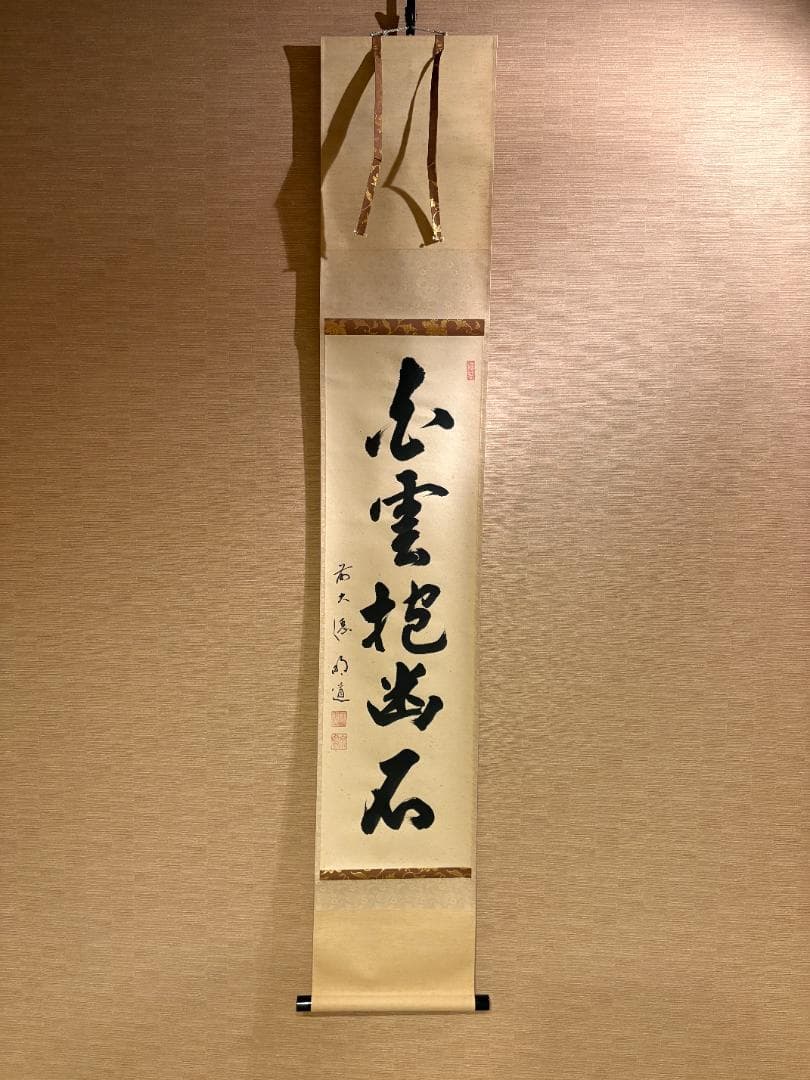 白雲抱幽石
前大徳 明道